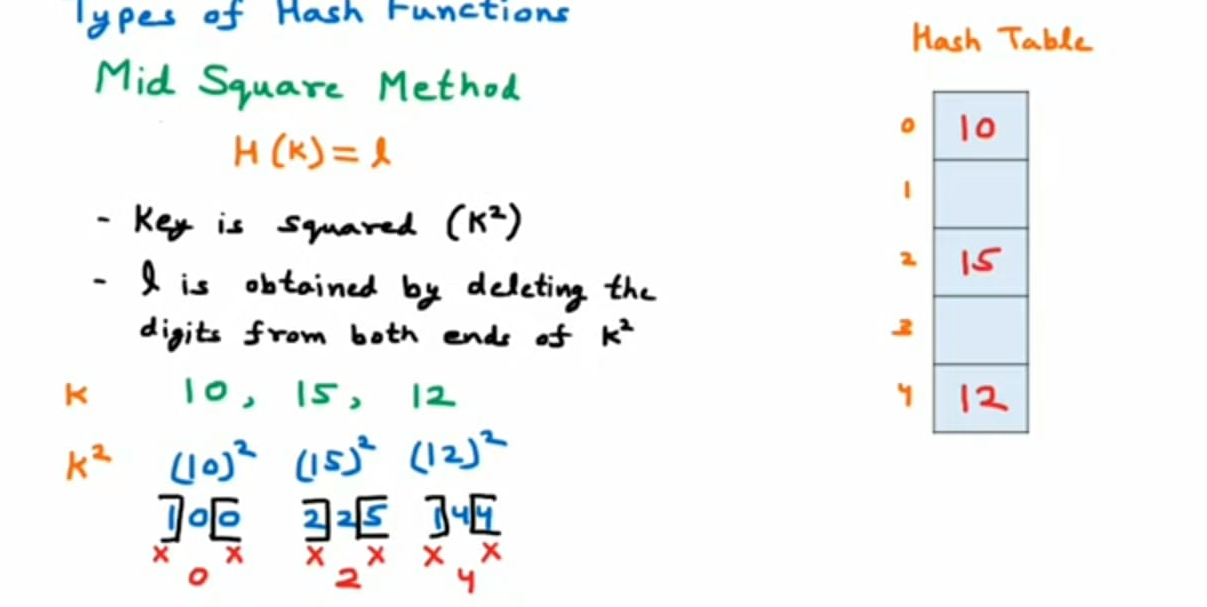 Types of Hash Functions
Mid Square Method
H(K) = l
- Key is squared (K²)
- l is obtained by deleting the
digits from both ends of K²
K 10, 15, 12
K² (10)² (15)² (12)²
1]0[0 2]2[5 1]4[4
x x x x x x
0 2 4
Hash Table
0 10
1
2 15
3
4 12